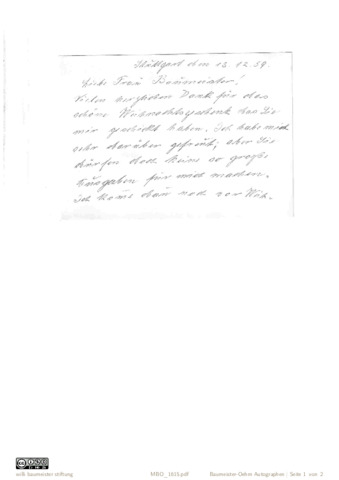 Stuttgart den 13.12.59.
Liebe Frau Baumeister!
Vielen herzlichen Dank für das
schöne Weihnachtsgeschenk das Sie
mir geschickt haben. Ich habe mich
sehr darüber gefreut; aber Sie
dürfen doch keine so große
Ausgaben für mich machen.
Ich komme dann noch vor
willi baumeister stiftung
MBO_1615.pdf
Baumeister-Oehm Autographen | Seite 1 von 2